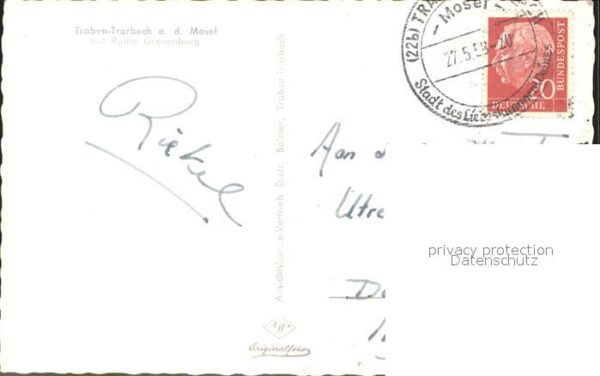 Traben-Trarbach a. d. Mosel
mit Ruine Grevenburg
Ansichtskarten-Vertrieb Dietr. Balmer, Traben-Trarbach
Originalfoto
(22b) TRA
- Mosel -
27.5.58-20
Stadt des
20
DEUTSCHE
BUNDESPOST
Aan
Utre
privacy protection
Datenschutz